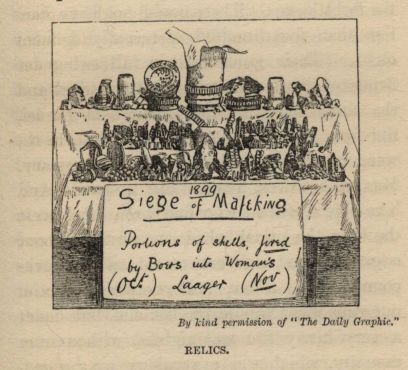 Siege 1899 of Mafeking
Portions of shells, fired
by Boers into Woman's
(Oct) Laager (Nov)
By kind permission of "The Daily Graphic."
RELICS.